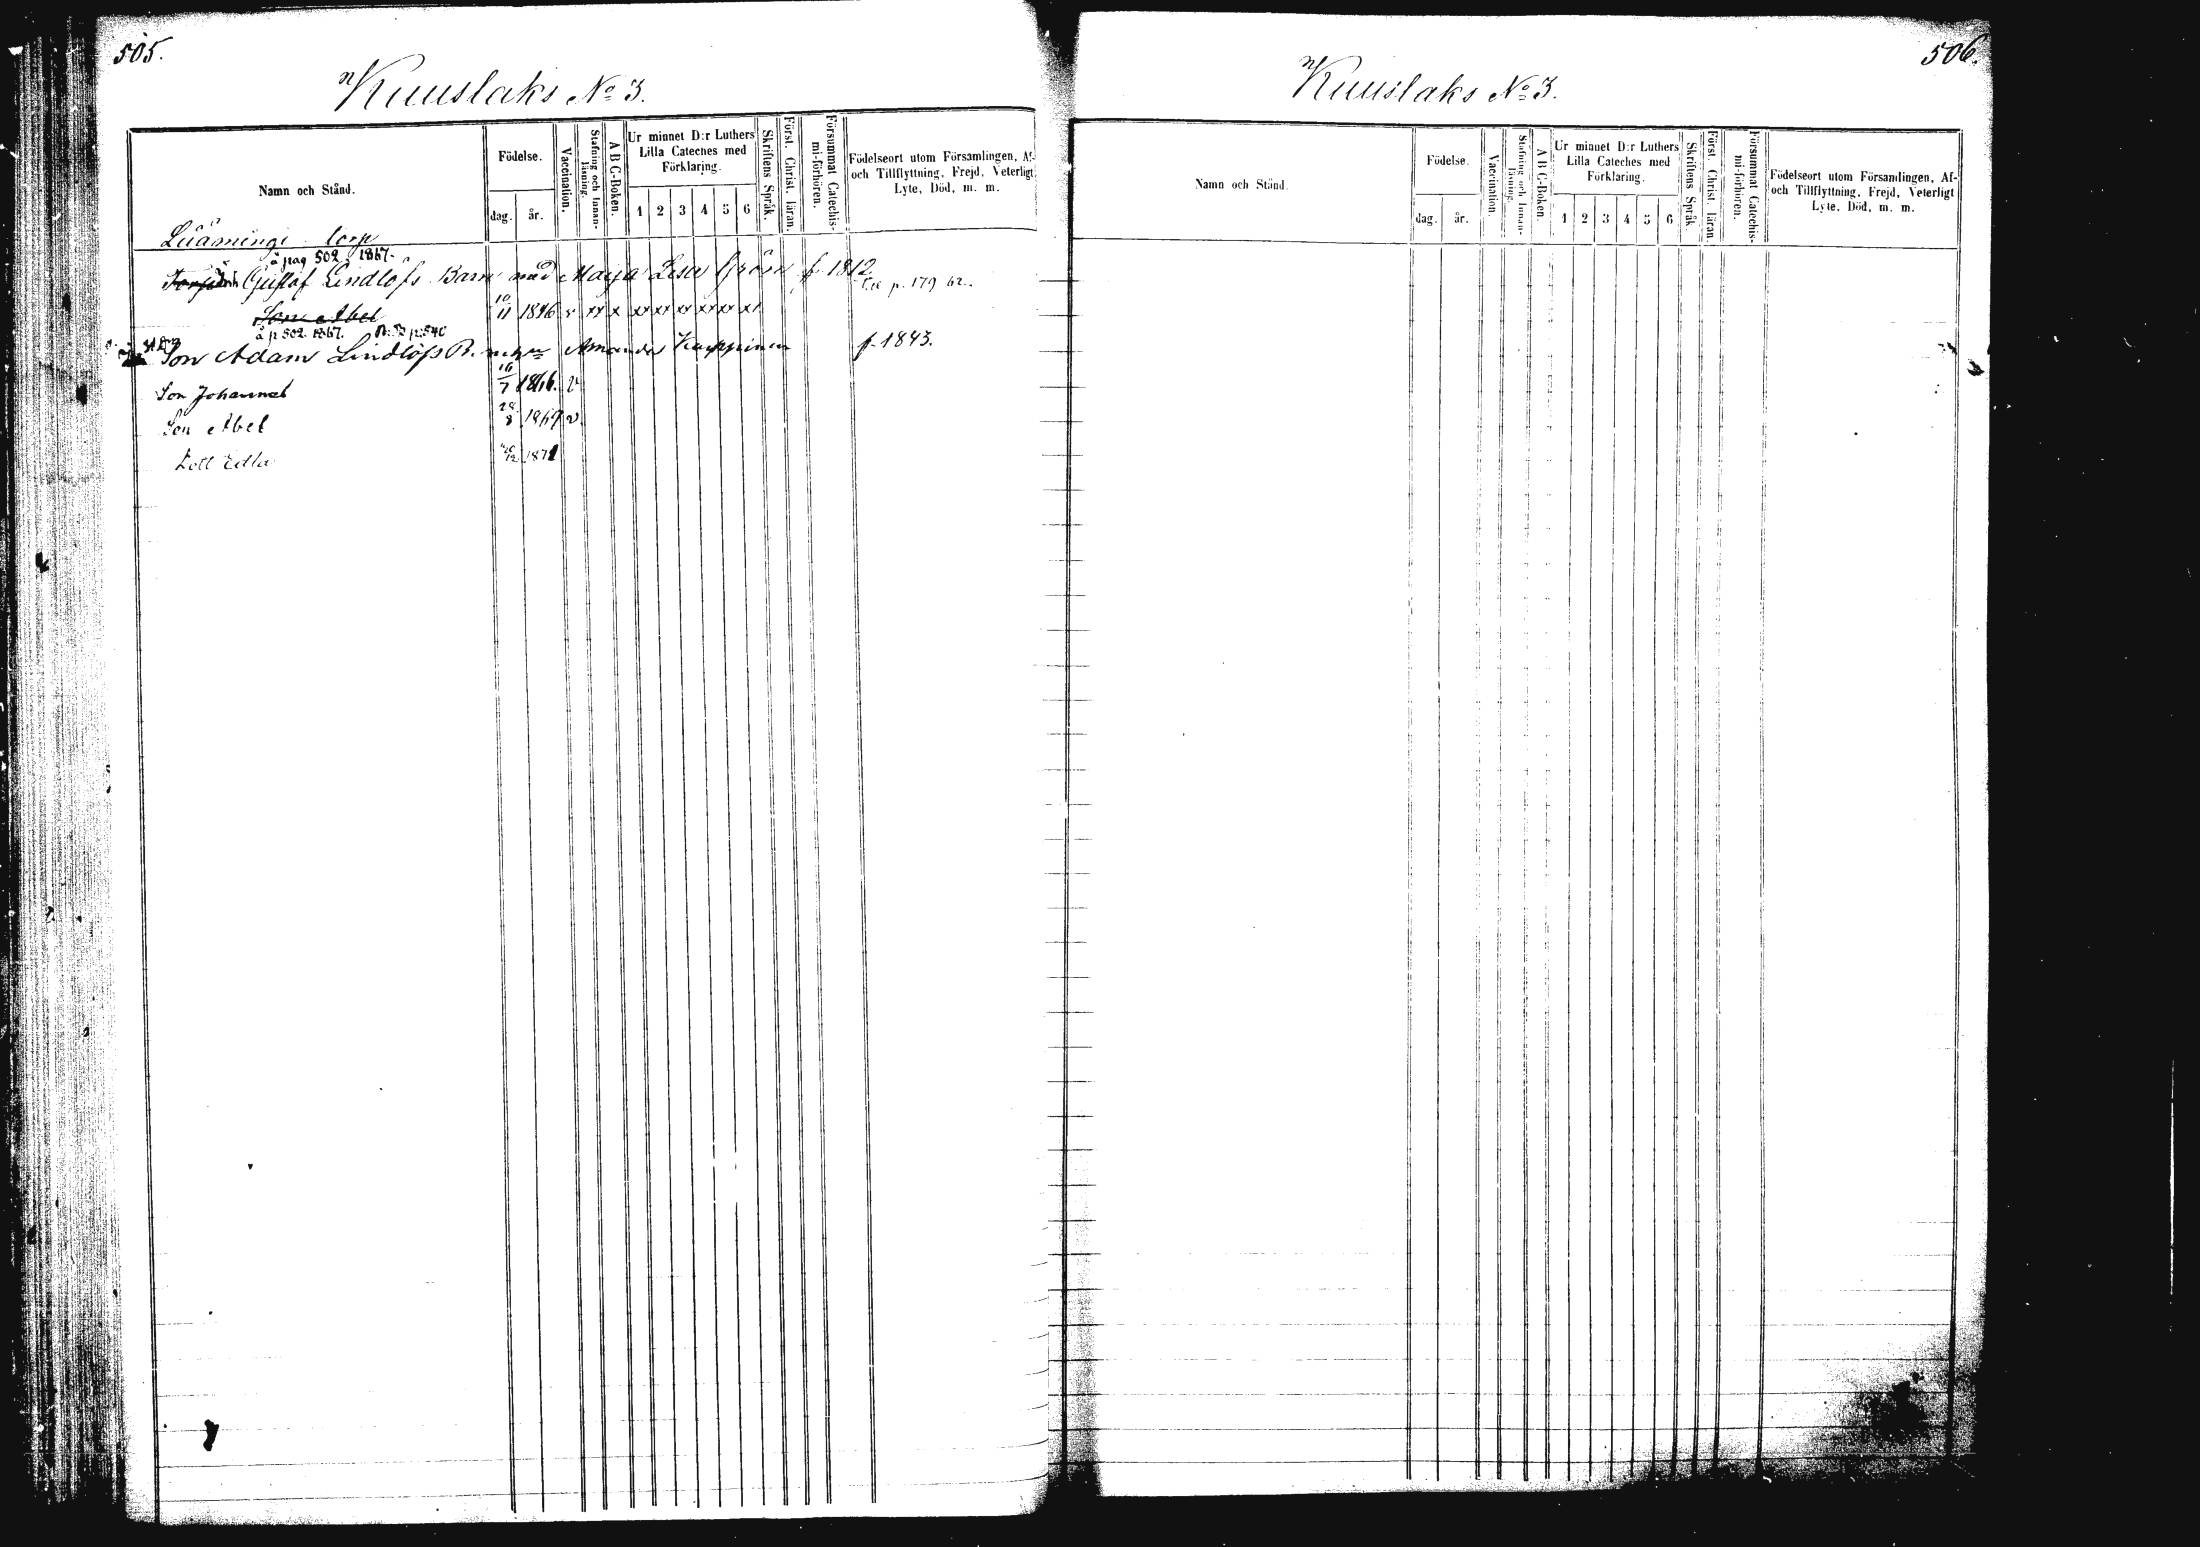 505.
Kuuslaks No 3.
Namn och Stånd.
Födelse.
dag.
år.
Vaccination.
Stafning och Innan-läsning.
A B C-Boken.
Ur minnet D:r Luthers
Lilla Cateches med
Förklaring.
1 2 3 4 5 6
Skriftens Språk.
Först. Christ. läran.
Försummat Catechis-mi-förhören.
Födelseort utom Församlingen, Af-
och Tillflyttning, Frejd, Veterligt
Lyte, Död, m. m.
torp
å pag 502 1867.
Gustaf Lindlöfs Barn med Maja Lisa Ström f. 1812
p. 179 62.
Son Abel 10/11 1846 v
å p 502 1867. p. 540
Son Adam Lindlöfs B. Amanda f. 1843.
Son Johannes 16/7 1866. v
Son Abel 28/8 1869 v
Dott Edla 1871
506.
Kuuslaks No 3.
Namn och Stånd.
Födelse.
dag.
år.
Vaccination.
Stafning och Innan-läsning.
A B C-Boken.
Ur minnet D:r Luthers
Lilla Cateches med
Förklaring.
1 2 3 4 5 6
Skriftens Språk
Först. Christ. läran.
Försummat Catechis-mi-förhören.
Födelseort utom Församlingen, Af-
och Tillflyttning, Frejd, Veterligt
Lyte, Död, m. m.